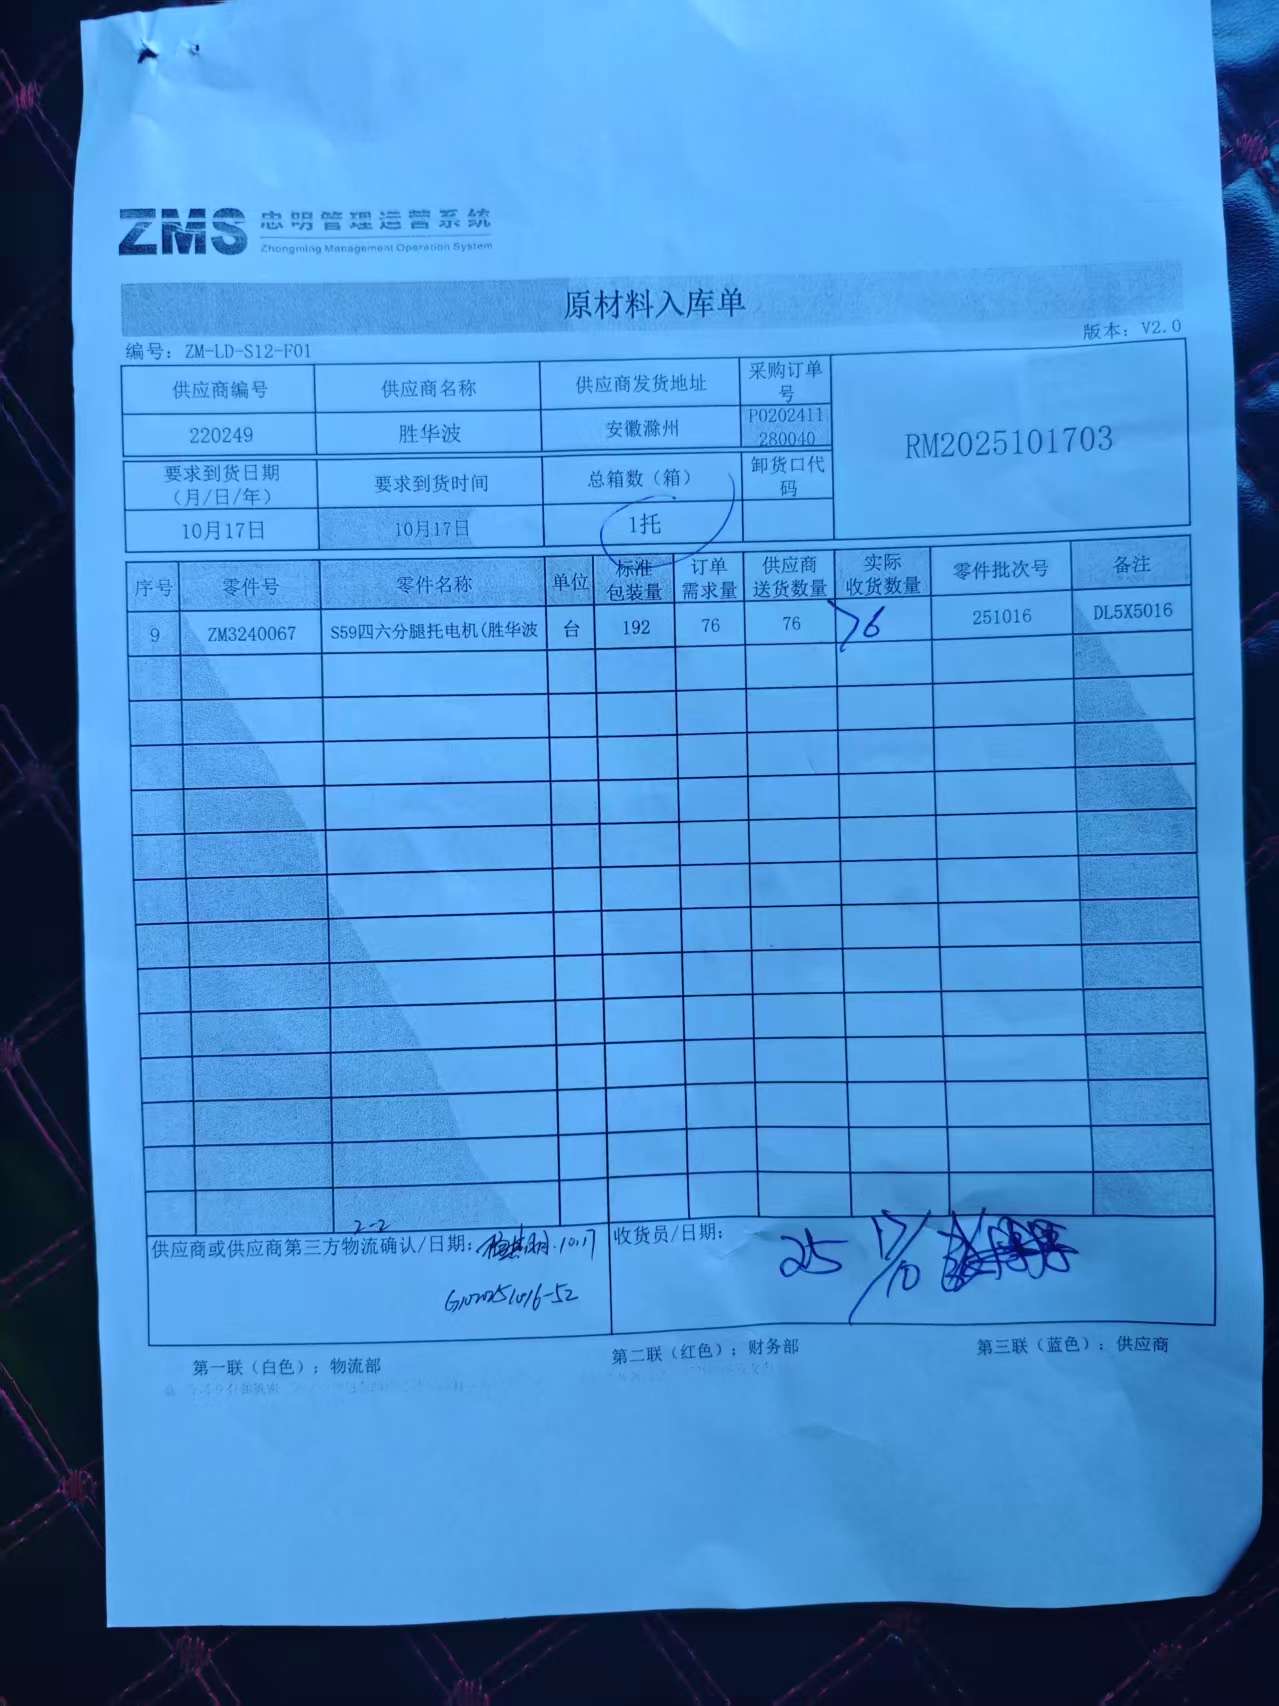 ZMS 忠明管理运营系统
Zhongming Management Operation System
原材料入库单
编号：ZM-LD-S12-F01 版本：V2.0
供应商编号 供应商名称 供应商发货地址 采购订单号
220249 胜华波 安徽滁州 PO202411280040 RM2025101703
要求到货日期（月/日/年） 要求到货时间 总箱数（箱） 卸货口代码
10月17日 10月17日 1托
序号 零件号 零件名称 单位 标准包装量 订单需求量 供应商送货数量 实际收货数量 零件批次号 备注
9 ZM3240067 S59四六分腿托电机(胜华波 台 192 76 76 76 251016 DL5X5016
2-2
供应商或供应商第三方物流确认/日期： 10.17 收货员/日期： 25 17/10
第一联（白色）；物流部 第二联（红色）；财务部 第三联（蓝色）：供应商